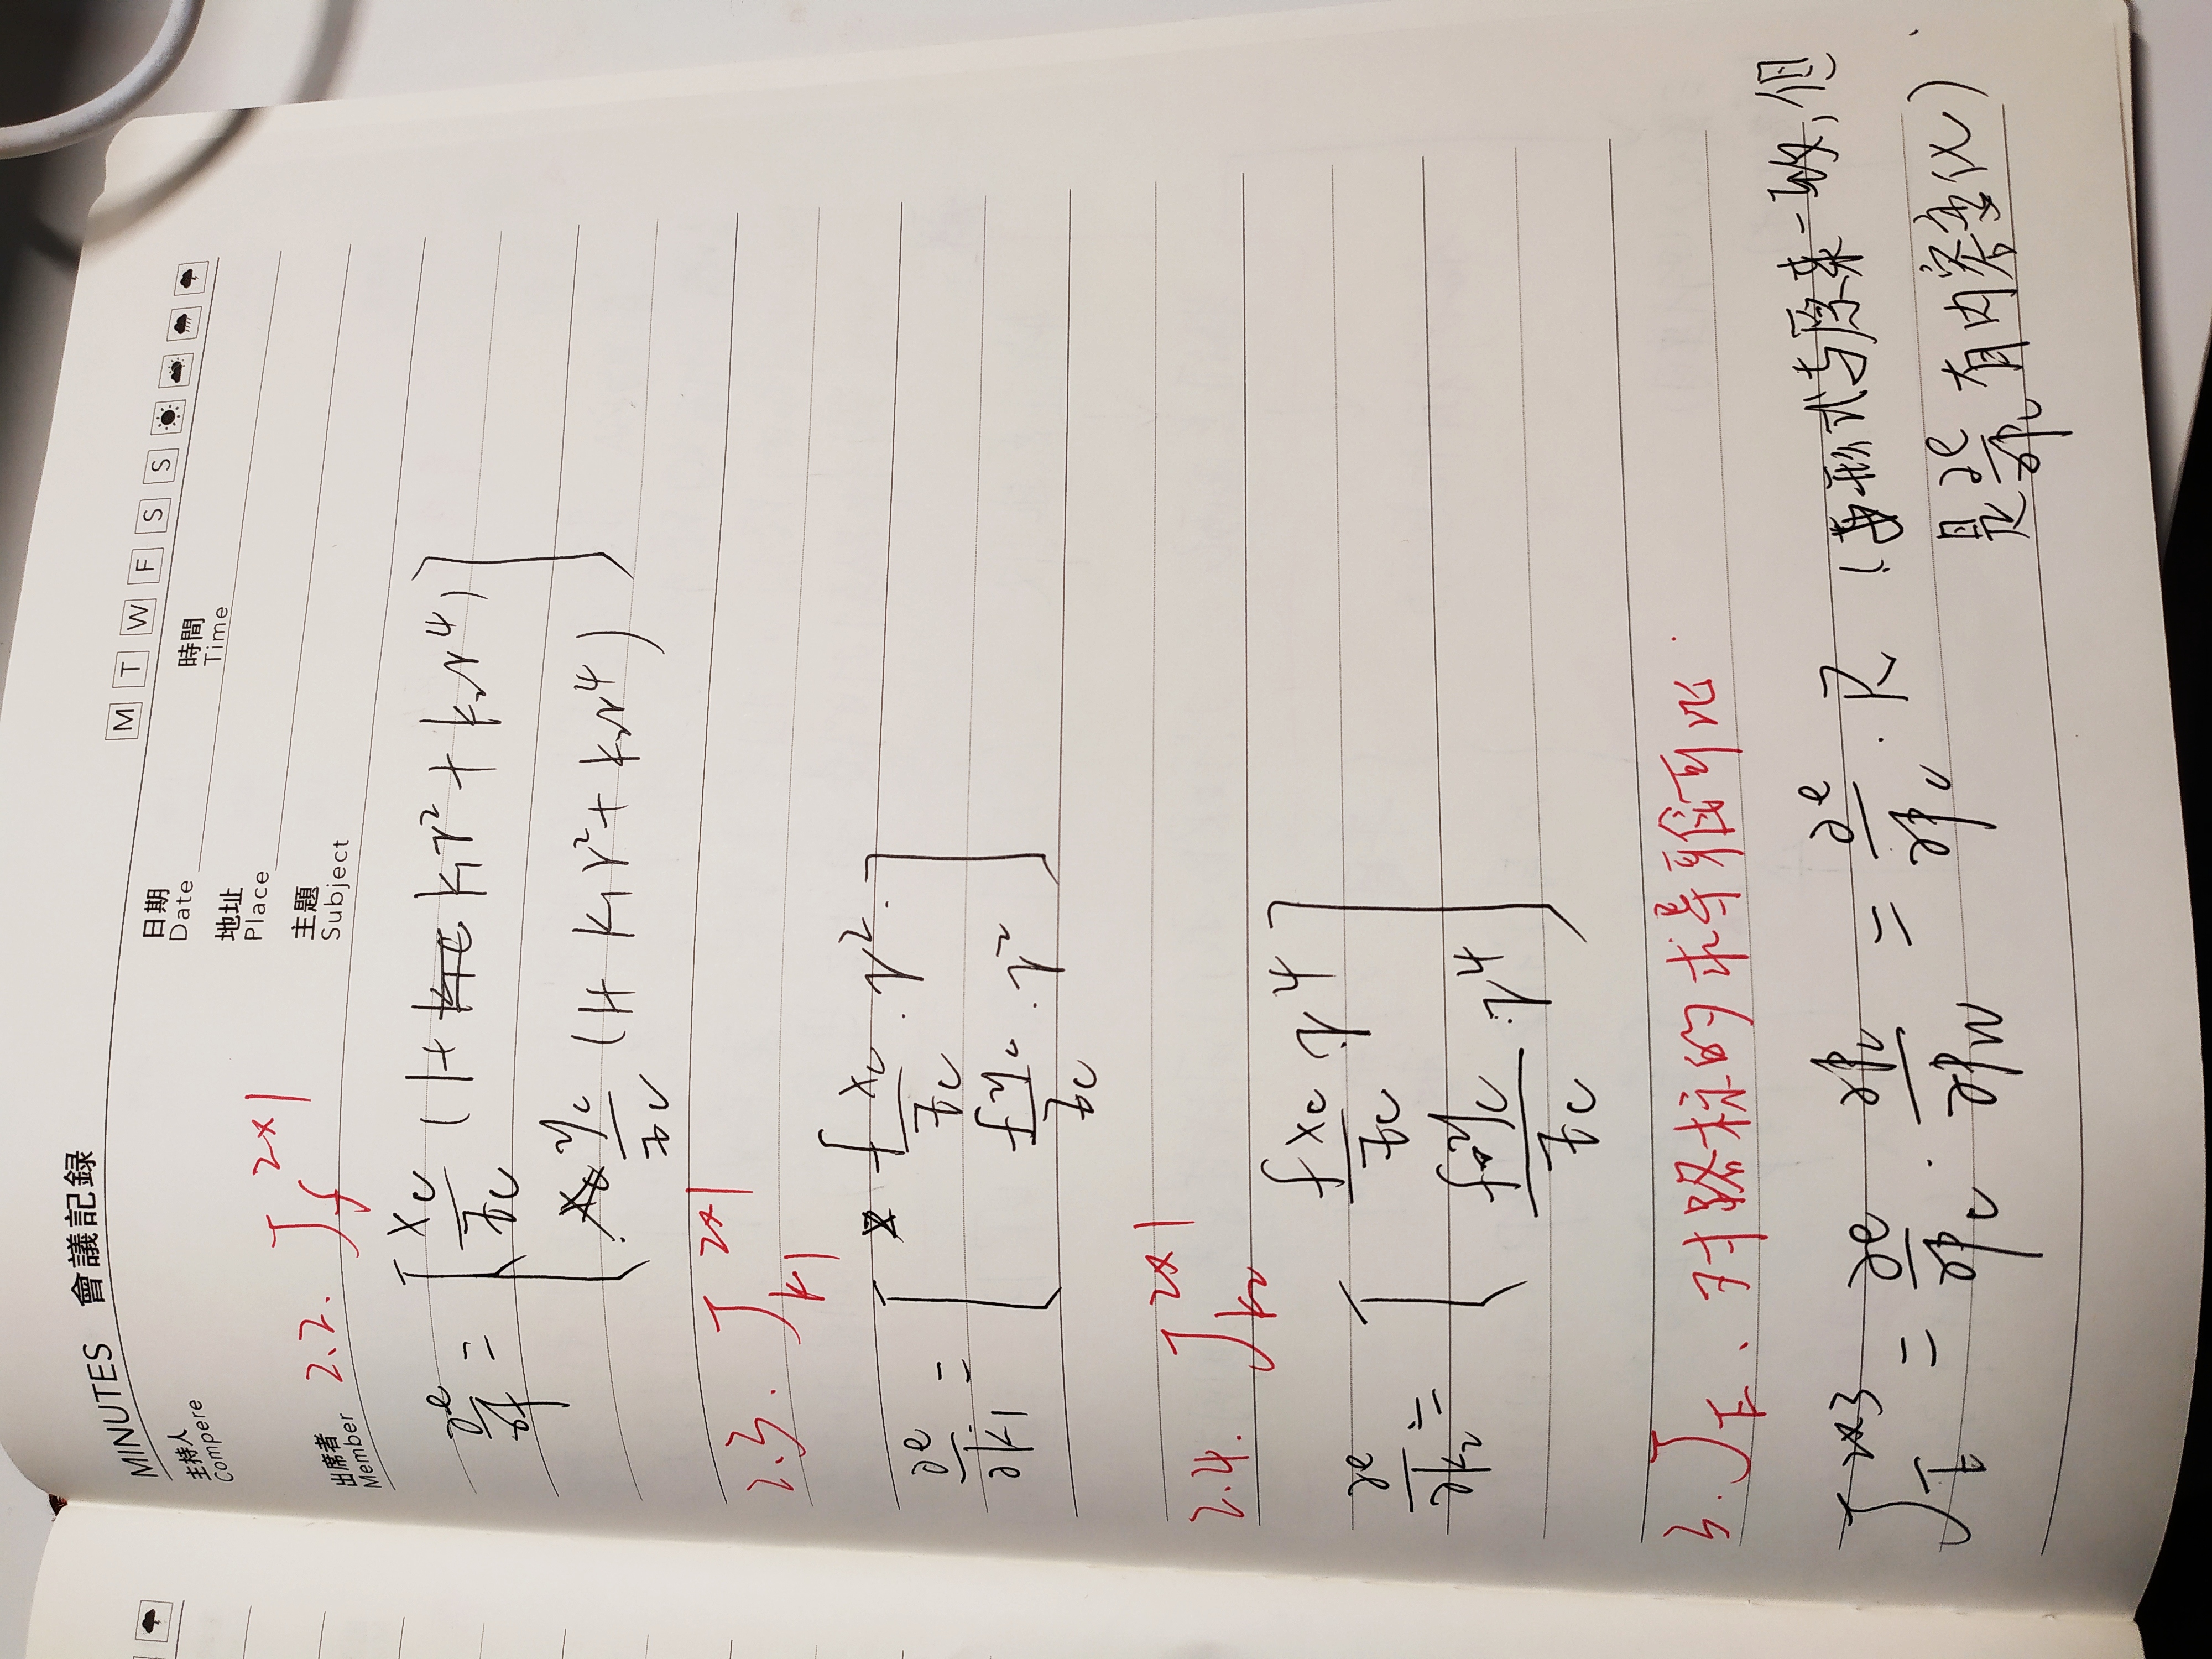 MINUTES 會議記録
M T W F S S
主持人
Compere
日期
Date
時間
Time
地址
Place
出席者
Member
主題
Subject
2.2. J_f^{2×1}
∂e/∂f = [ x_c/z_c (1+ k_1r^2 + k_2r^4)
y_c/z_c (1+ k_1r^2 + k_2r^4) ]
2.3. J_{k1}^{2×1}
∂e/∂k_1 = [ f x_c/z_c · r^2
f y_c/z_c · r^2 ]
2.4. J_{k2}^{2×1}
∂e/∂k_2 = [ f x_c/z_c · r^4
f y_c/z_c · r^4 ]
3. J_E、对路标的求导雅可比
J_E^{2×3} = ∂e/∂p_c · ∂p_c/∂p_w = ∂e/∂p_c · R (形式与原来一致,但
是 ∂e/∂p_c 有内容变化)